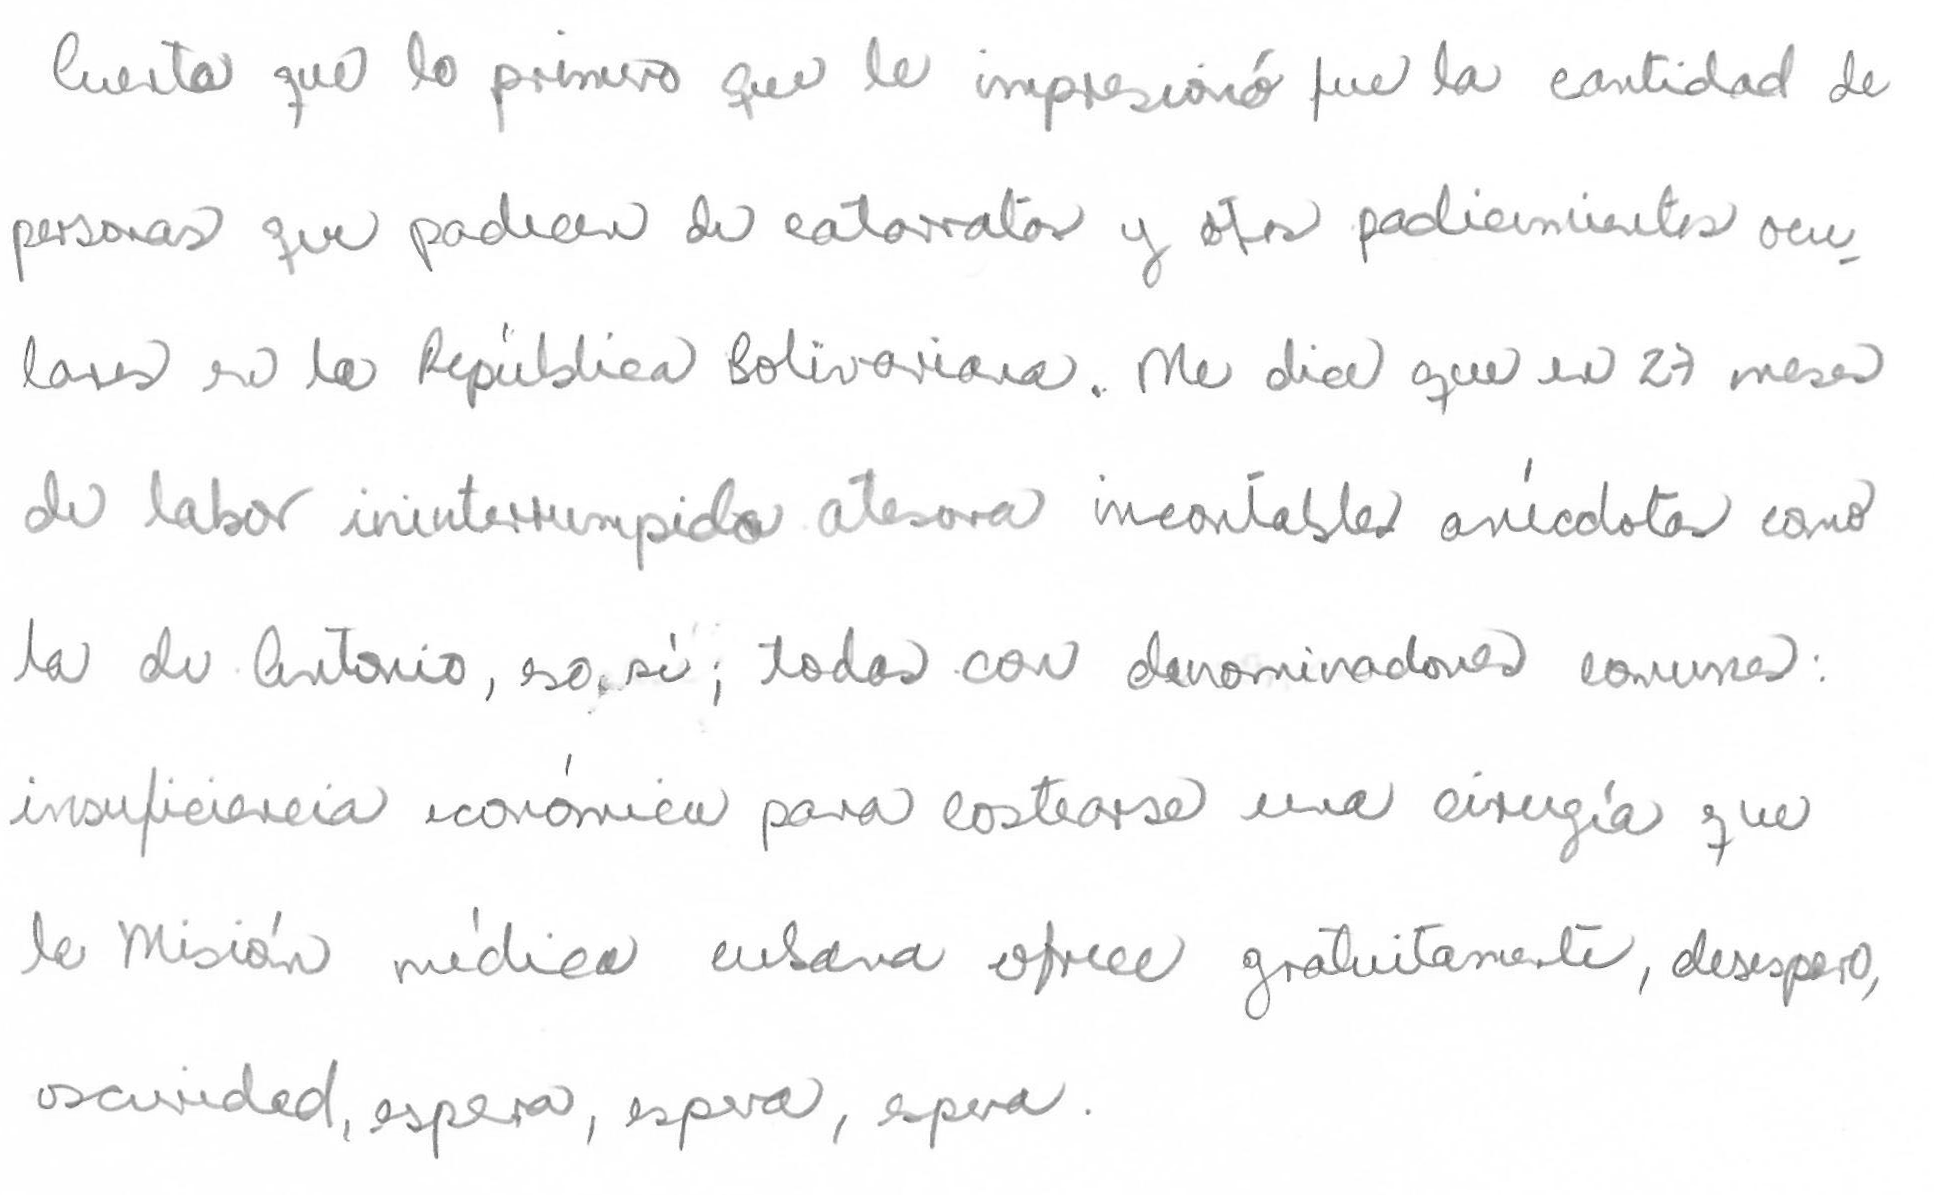 Cuenta que lo primero que le impresionó fue la cantidad de
personas que padecen de cataratas y otros padecimientos ocu-
lares en la República Bolivariana. Me dice que en 27 meses
de labor ininterrumpida atesora incontables anécdotas como
la de Antonio, eso, sí; todas con denominadores comunes:
insuficiencia económica para costearse una cirugía que
la Misión médica cubana ofrece gratuitamente, desespero,
oscuridad, espera, espera, espera.